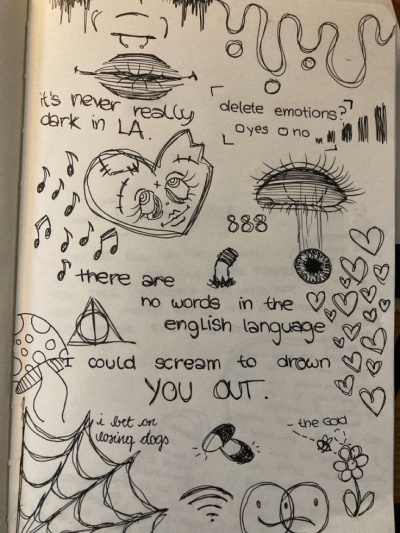 it's never really
dark in LA.
delete emotions?
yes no
888
there are
no words in the
english language
I could scream to drown
YOU OUT.
i bet on
losing dogs
- the God